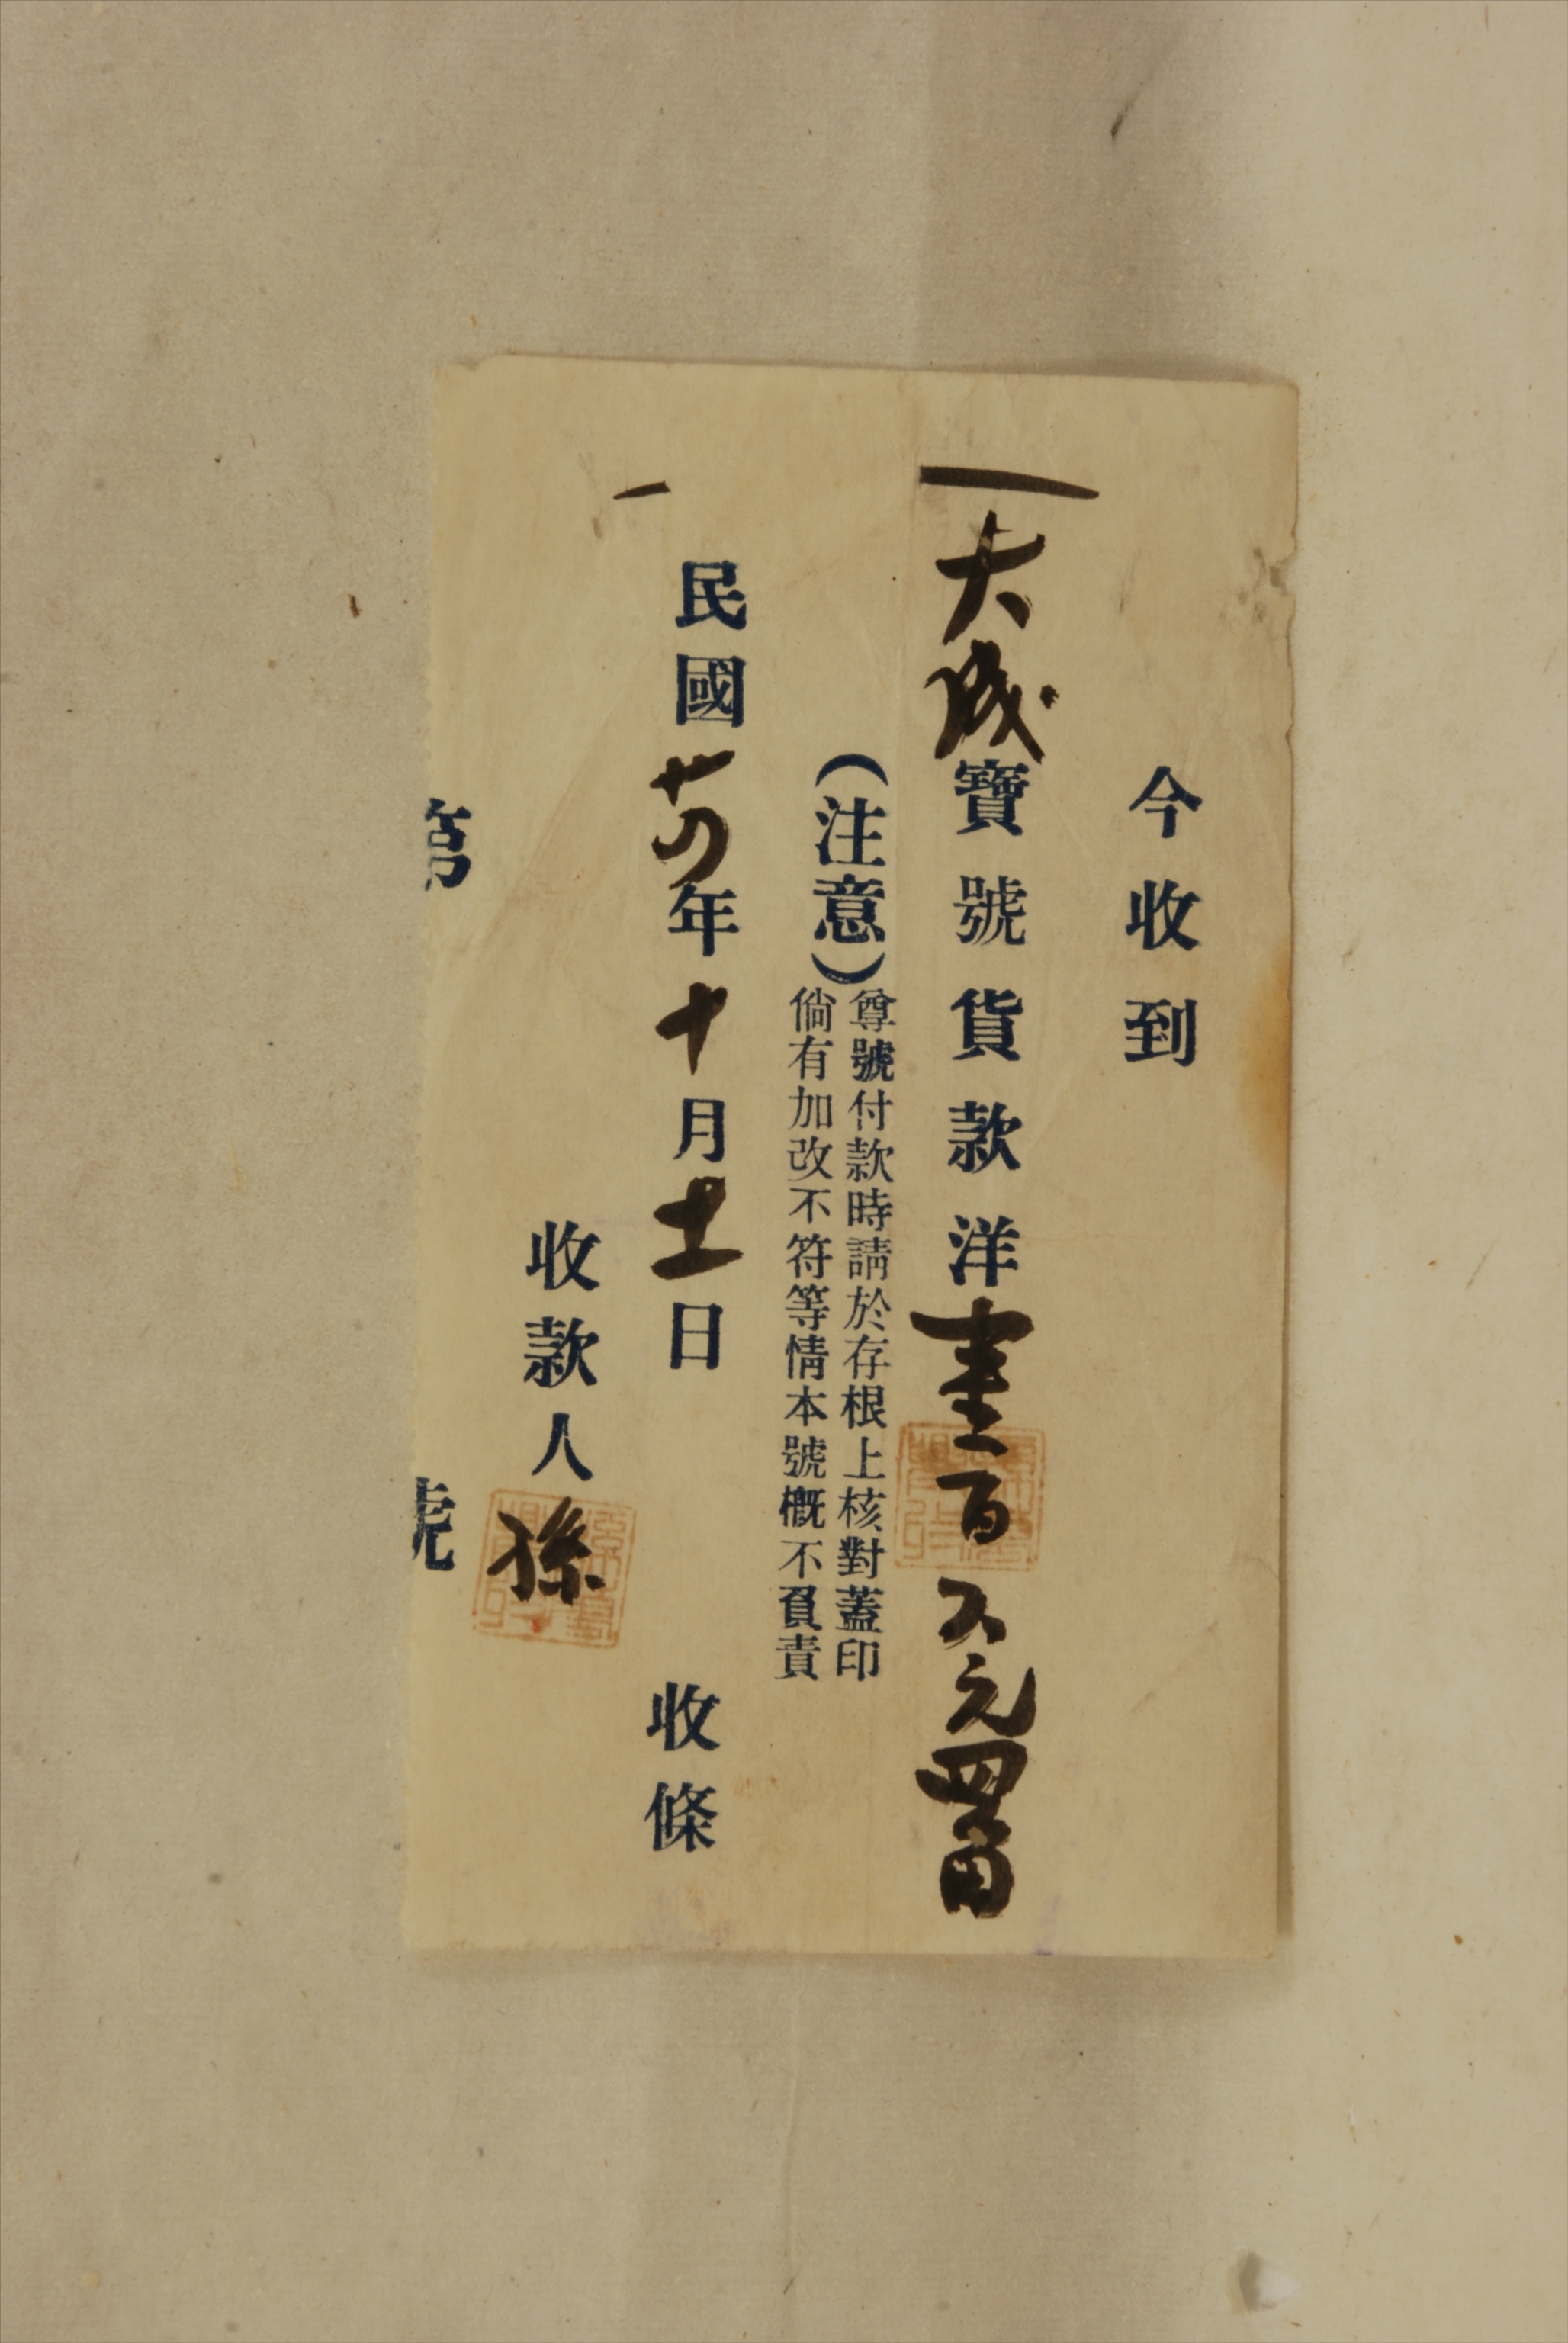 今收到
大成寶號貨款洋壹百 元四角
(注意)尊號付款時請於存根上核對蓋印
倘有加改不符等情本號概不負責
民國廿四年十月十一日
收條
收款人孫
第 號